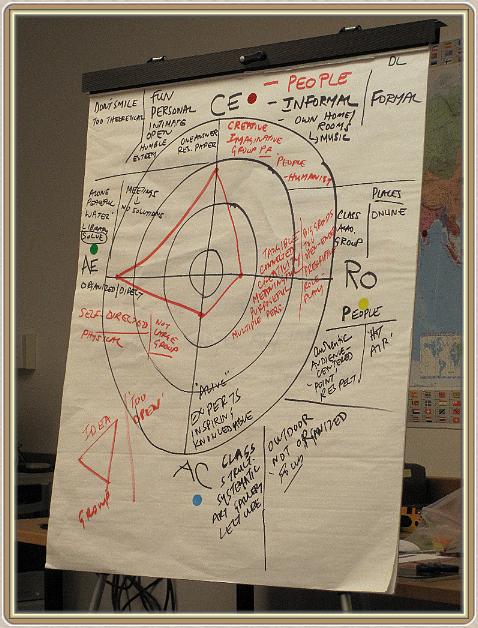 DL
DONT SMILE
TOO THEORETICAL
FUN
PERSONAL
INTIMATE
OPEN
HUMBLE
CE
- PEOPLE
- INFORMAL
OWN HOME/
ROOMS
MUSIC
FORMAL
ONE ANSWER
RES. PAPER
CREATIVE
IMAGINATIVE
GROUP PR
PEOPLE
- HUMANIST
ALONE
PEACEFUL
WATER
LIBRARY
SOLVE
MEETINGS
NO SOLUTIONS
AE
ORGANIZED/DIRECT
SELF-DIRECTED
PHYSICAL
NOT
LARGE
GROUP
TANGIBLE
CONNECTED
CREATIVE
MEANINGFUL
PURPOSEFUL
MULTIPLE PERS.
BIG GROUPS
TOO
ROLE
PLAYS
CLASS
GROUP
PLACES
ONLINE
RO
PEOPLE
AUTHENTIC
AUDIENCE-
CENTERED
POINT
RESPECT
"HOT
AIR"
"ALIVE"
EXPERTS
INSPIRING
KNOWLEDGABLE
IDEA
GROUP
"TOO
OPEN"
AC
CLASS
STRUCT.
SYSTEMATIC
ART GALLERY
LECTURE
OUTDOOR
- NOT ORGANIZED